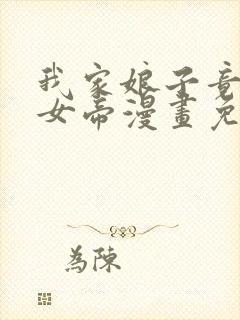 我家娘子竟
女帝漫畫免
為陳